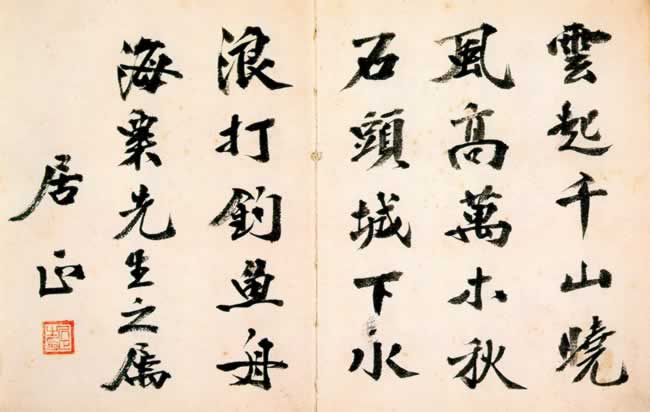 雲起千山曉
風高萬木秋
石頭城下水
浪打釣魚舟
海粟先生之屬
居正